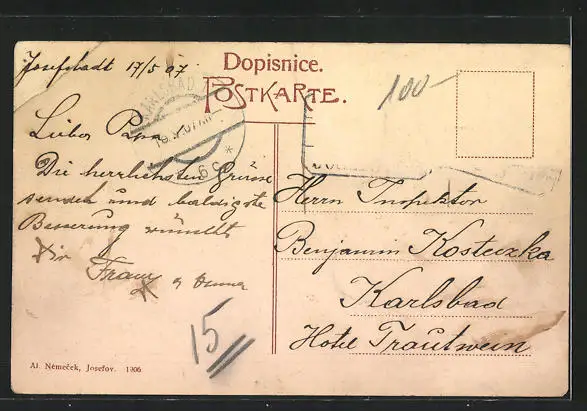 Josefstadt 17/5 07
Dopisnice.
POSTKARTE.
100-
KARLSBAD
6c *
Lieber Papa
Die herrlichsten Grüsse
senden und baldigste
Besserung wünscht
Dir
Franz &
Herrn Inspektor
Benjamin Kosteczka
Karlsbad
Hotel Trautwein
15
Al. Němeček, Josefov. 1906